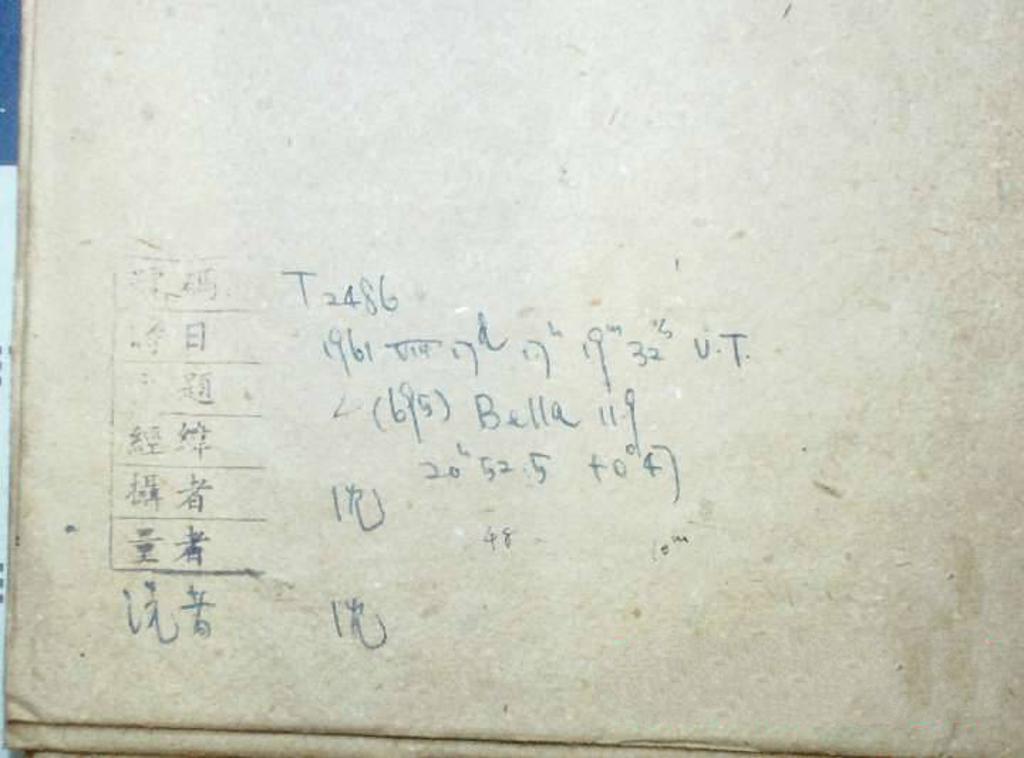 號碼 T 2486
時日 1961 VIII 17d 17h 19m 32s U.T.
題 (695) Bella 119
經緯 20h 52.5 +0° 47
攝者 沈
量者 48 10m
洗者 沈